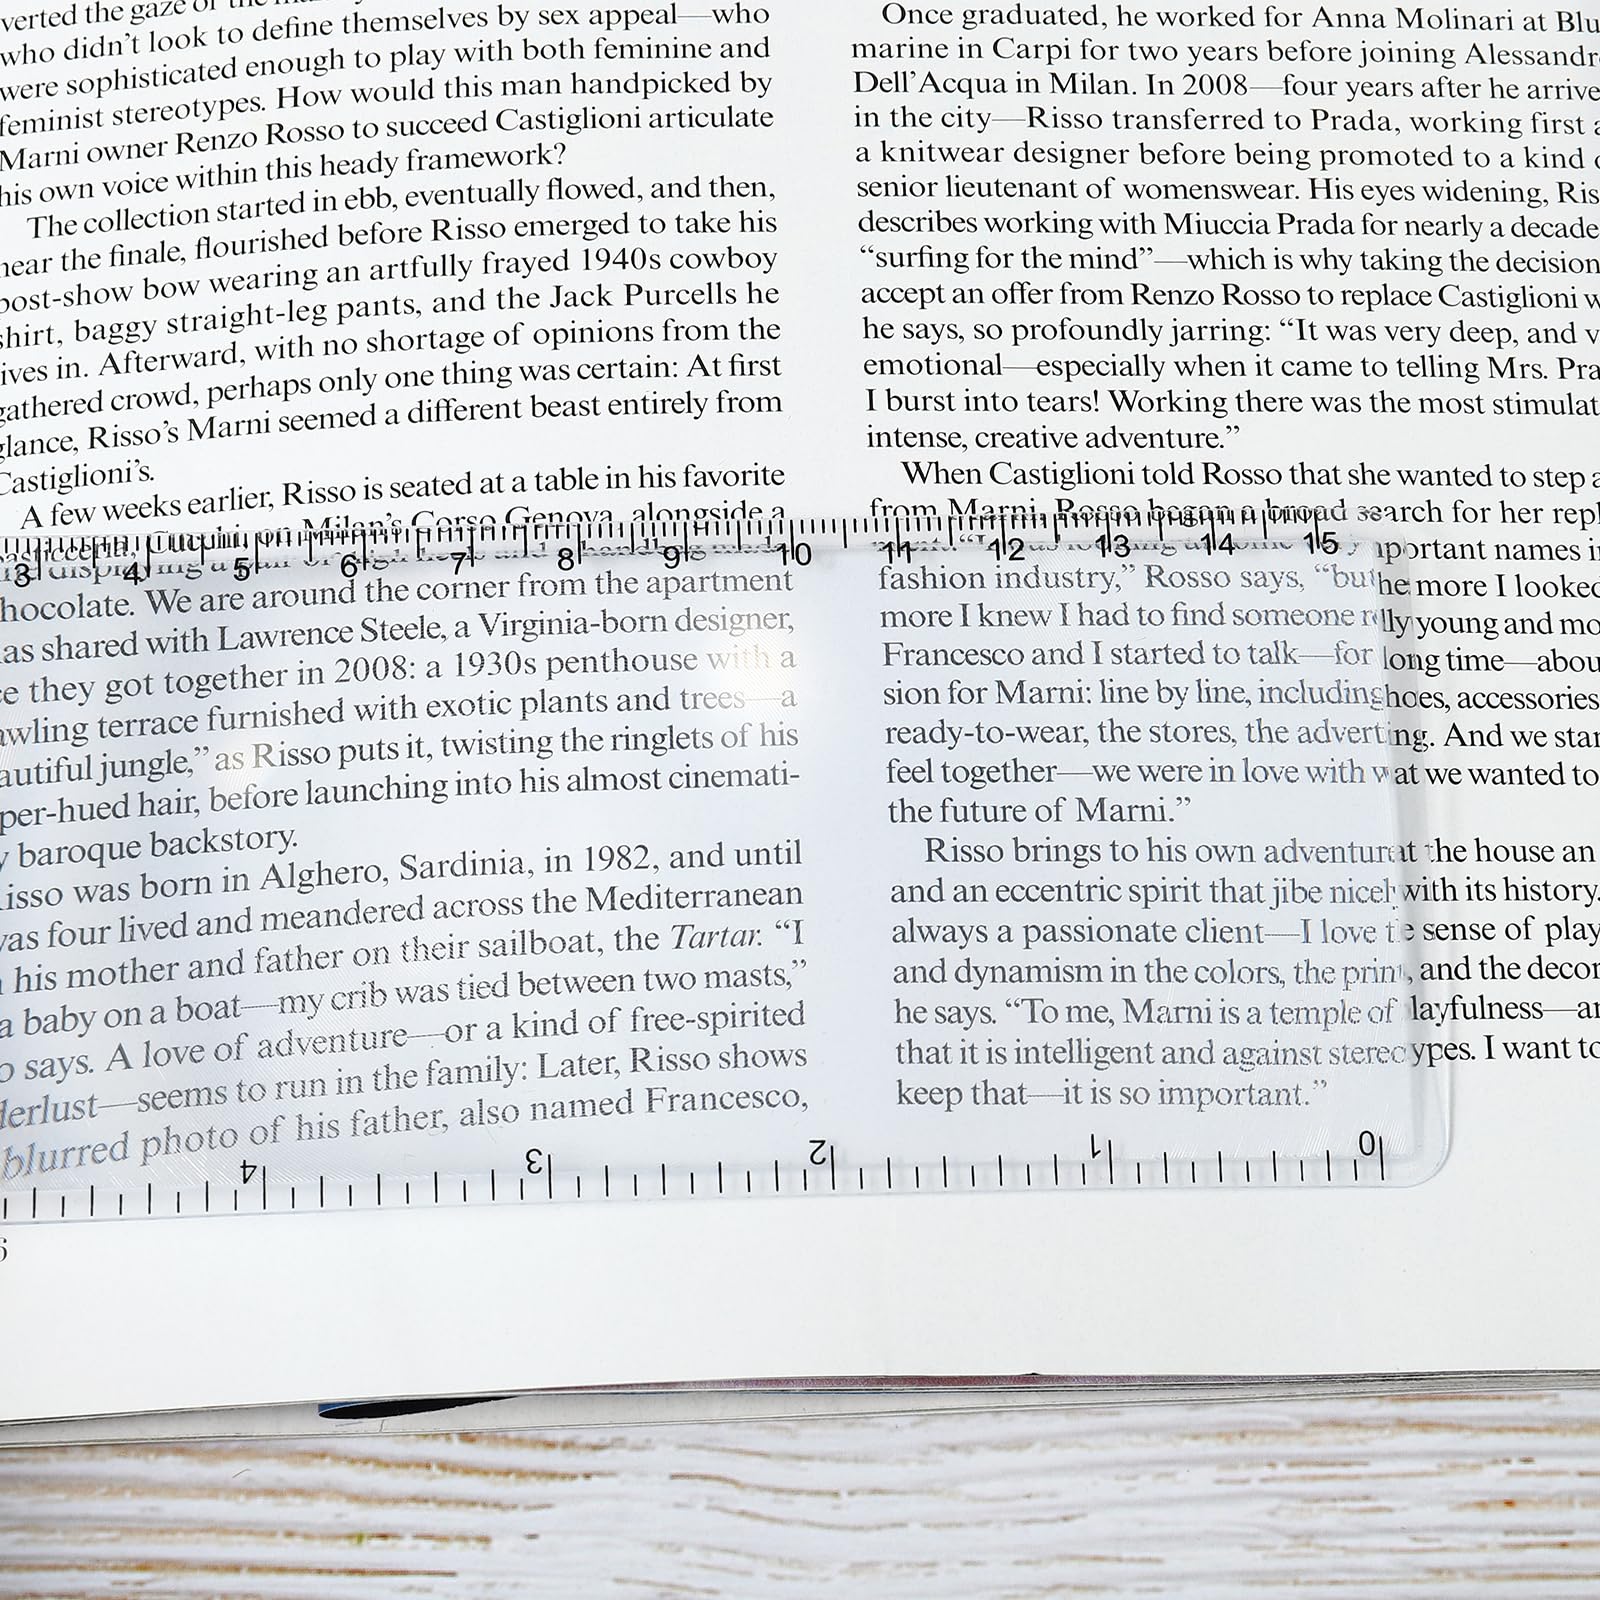 verted the gaze of the
who didn't look to define themselves by sex appeal—who
were sophisticated enough to play with both feminine and
feminist stereotypes. How would this man handpicked by
Marni owner Renzo Rosso to succeed Castiglioni articulate
his own voice within this heady framework?
The collection started in ebb, eventually flowed, and then,
near the finale, flourished before Risso emerged to take his
post-show bow wearing an artfully frayed 1940s cowboy
shirt, baggy straight-leg pants, and the Jack Purcells he
ives in. Afterward, with no shortage of opinions from the
gathered crowd, perhaps only one thing was certain: At first
glance, Risso's Marni seemed a different beast entirely from
Castiglioni's.
A few weeks earlier, Risso is seated at a table in his favorite
Milan's Corso Genova, alongside a
hocolate. We are around the corner from the apartment
as shared with Lawrence Steele, a Virginia-born designer,
ce they got together in 2008: a 1930s penthouse with a
awling terrace furnished with exotic plants and trees—a
autiful jungle," as Risso puts it, twisting the ringlets of his
per-hued hair, before launching into his almost cinemati-
y baroque backstory.
isso was born in Alghero, Sardinia, in 1982, and until
was four lived and meandered across the Mediterranean
his mother and father on their sailboat, the Tartar. "I
a baby on a boat—my crib was tied between two masts,"
o says. A love of adventure—or a kind of free-spirited
derlust—seems to run in the family: Later, Risso shows
blurred photo of his father, also named Francesco,
6
Once graduated, he worked for Anna Molinari at Blu
marine in Carpi for two years before joining Alessandr
Dell'Acqua in Milan. In 2008—four years after he arrive
in the city—Risso transferred to Prada, working first a
a knitwear designer before being promoted to a kind o
senior lieutenant of womenswear. His eyes widening, Ris
describes working with Miuccia Prada for nearly a decade
"surfing for the mind"—which is why taking the decision
accept an offer from Renzo Rosso to replace Castiglioni w
he says, so profoundly jarring: "It was very deep, and v
emotional—especially when it came to telling Mrs. Pra
I burst into tears! Working there was the most stimulat
intense, creative adventure."
When Castiglioni told Rosso that she wanted to step a
from Marni, Rosso began a broad search for her repl
portant names i
fashion industry," Rosso says, "but he more I looked
more I knew I had to find someone lly young and mo
Francesco and I started to talk—for long time—abou
sion for Marni: line by line, including hoes, accessories
ready-to-wear, the stores, the adverting. And we star
feel together—we were in love with w at we wanted to
the future of Marni."
Risso brings to his own adventure at the house an
and an eccentric spirit that jibe nicely with its history.
always a passionate client—I love t e sense of play
and dynamism in the colors, the print, and the decor
he says. "To me, Marni is a temple of layfulness—an
that it is intelligent and against stereo ypes. I want to
keep that—it is so important."
3 4 5 6 7 8 9 10 11 12 13 14 15
4 3 2 1 0